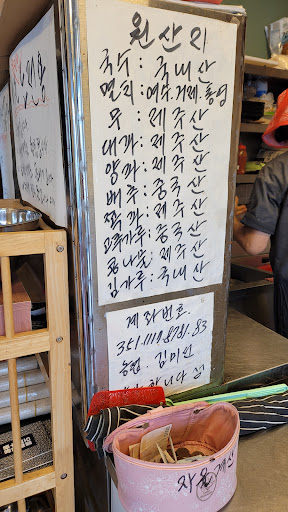 원산지
국수: 국내산
멸치: 여수.거제.통영
무: 제주산
대파: 제주산
양파: 제주산
배추: 중국산
쪽파: 제주산
고추가루: 중국산
콩나물: 제주산
김가루: 국내산
계좌번호
351.1119.8781.83
농협. 김미선
합니다
자율계산